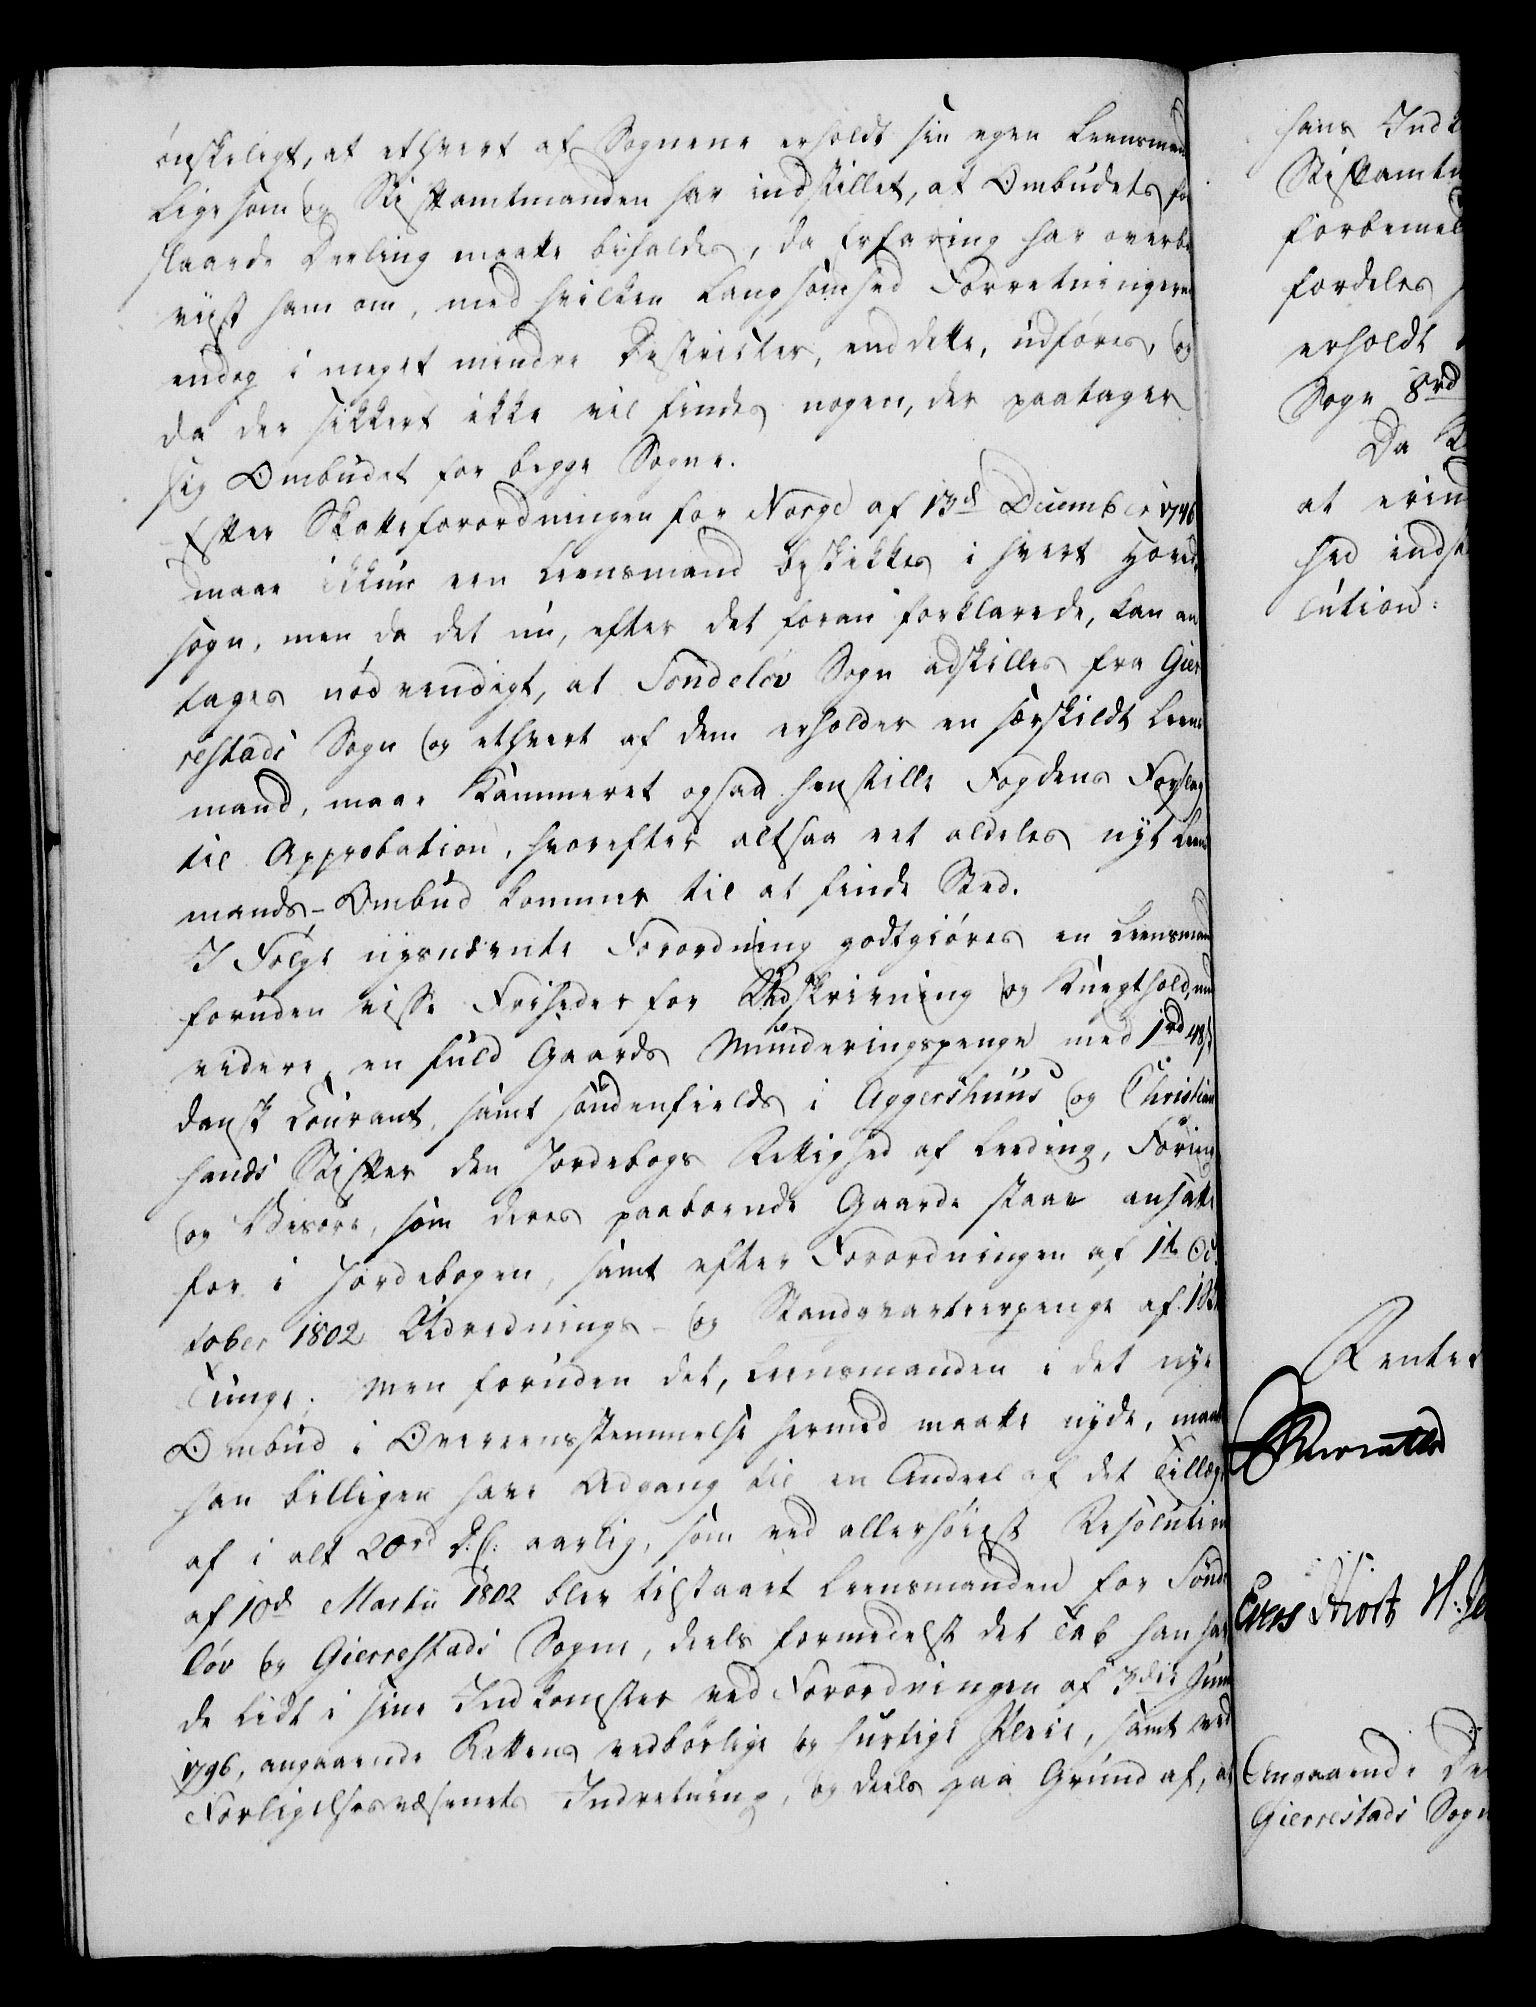 ønskeligt, at ethvert af Sognene erholdt sin egen Leensmand
Ligesom og Stiftamtmanden har indstillet, at Ombudets fore
slaaede Deeling maatte bifaldes, da Erfaring har overbe
viist ham om, med hvilken Langsomhed Forretningerne
endog i meget mindre Districter, end dette, udføres, og
da der sikkert ikke vil findes nogen, der paatager
sig Ombudet for begge Sogne.
Efter Skatteforordningen for Norge af 13de December 1746
maae ikkun een Leensmand beskikkes i hvert Hoved
sogn, men da det nu, efter det foran forklarede, kan an
tages nødvendigt, at Søndeløv Sogn adskilles fra Gier
restads Sogn og ethvert af dem erholder en særskildt Leens
mand, maae Kammeret ogsaa henstille Fogdens Forslag
til Approbation, hvorefter altsaa eet aldeles nyt Leens
mands-Ombud kommer til at finde Sted.
I Følge nysnævnte Forordning godtgiøres en Leensmand
foruden visse Friheder for Udskrivning og Knegthold,
videre, en fuld Gaards Munderingspenge med 1rd 48s
dansk Courant, samt søndenfields i Aggershuus og Christian
sands Stifter den Jordebogs Rettighed af Leeding, Foring
og Viisøre, som deres paaboende Gaarde staae ansatte
for i Jordebogen, samt efter Forordningen af 1te Oc
tober 1802 Udrednings- og Standqvarteerpenge af 1
Tunge. Men foruden det, Leensmanden i det nye
Ombud i Overeensstemmelse hermed maatte nyde, maae
han billigen have Adgang til en Andeel af det Tillæg
af i alt 20rd D: C: aarlig, som ved allerhøieste Resolution
af 10de Martii 1802 blev tilstaaet Leensmanden for Sønde
løv og Gierrestads Sogne, deels formedelst det Tab han hav
de lidt i sine Indkomster ved Forordningen af 3die Junii
1796, angaaende Rettens vedbørlige og hurtige Pleie, samt ved
Forligelsesvæsenets Indretning, og deels paa Grund af, at
hans Ind
Stiftamtm
forbemel
fordeles
erholdt
Sogn 8rd
Da
at erind
hed indst
lution:
Rente
Angaaende De
Gierrestads Sogn